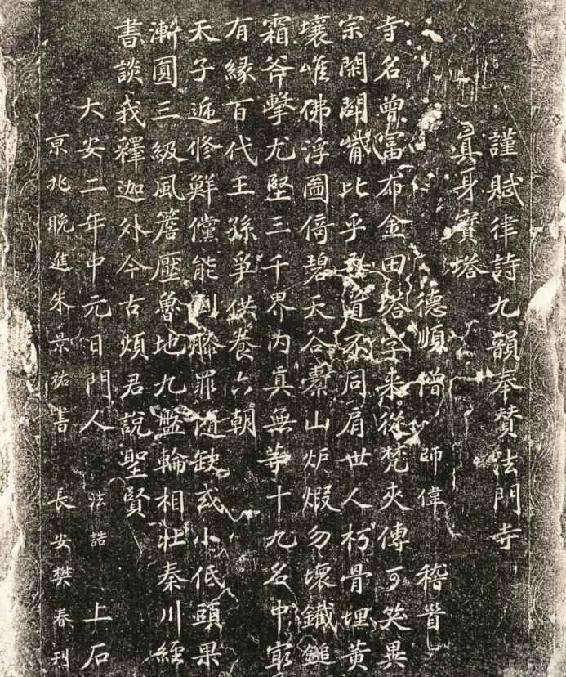 謹賦律詩九韻奉賛法門寺
真身寶塔
德順僧 師偉 稽首
寺名曾富布金田塔字来從梵夾傳可笑異
宗閑鬪觜比乎道不同肩世人朽骨埋黃
壤唯佛浮圖倚碧天谷槖山炉煆勿壞鐵鎚
霜斧擊尤堅三千界内真無等十九名中最
有緣百代王孫爭供養六朝
天子遞修鮮儻能膝罪隨缺或小低頭果
漸圓三級風簷壓魯地九盤輪相壯秦川經
書談我釋迦外今古煩君說聖賢
大安二年中元日門人 法誥 上石
京兆晚進朱景祐書 長安樊春刊